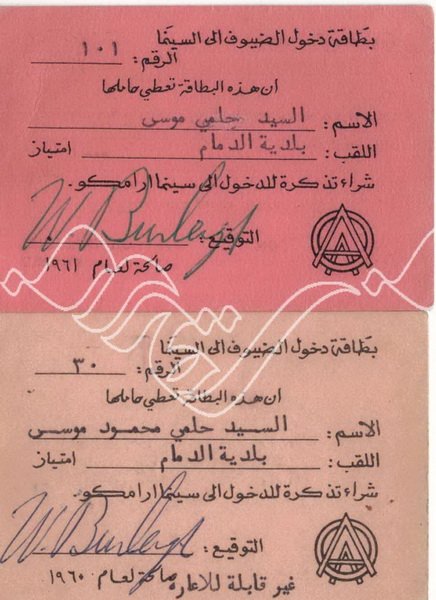 بطاقة دخول الضيوف الى السينما
الرقم: ١٠١
ان هذه البطاقة تعطي حاملها
الاسم: السيد حلمي موسى
اللقب: بلدية الدمام امتياز
شراء تذكرة للدخول الى سينما ارامكو.
التوقيع: W. Burleigh
صالحة لعام ١٩٦١
بطاقة دخول الضيوف الى السينما
الرقم: ٣٠
ان هذه البطاقة تعطي حاملها
الاسم: السيد حلمي محمود موسى
اللقب: بلدية الدمام امتياز
شراء تذكرة للدخول الى سينما ارامكو
التوقيع: W. Burleigh
صالحة لعام ١٩٦٠ غير قابلة للاعارة